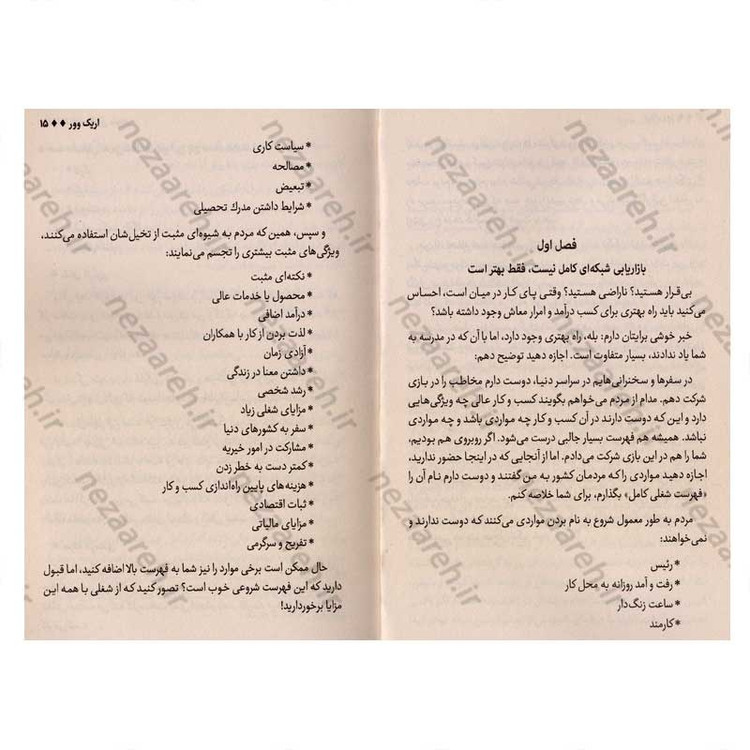 فصل اول
بازاریابی شبکه‌ای کامل نیست، فقط بهتر است
بی‌قرار هستید؟ ناراضی هستید؟ وقتی پای کار در میان است، احساس
می‌کنید باید راه بهتری برای کسب درآمد و امرار معاش وجود داشته باشد؟
خبر خوشی برایتان دارم: بله، راه بهتری وجود دارد، اما با آن که در مدرسه به
شما یاد ندادند، بسیار متفاوت است. اجازه دهید توضیح دهم:
در سفرها و سخنرانی‌هایم در سراسر دنیا، دوست دارم مخاطب را در بازی
شرکت دهم. مدام از مردم می‌خواهم بگویند کسب و کار عالی چه ویژگی‌هایی
دارد و این که دوست دارند در آن کسب و کار چه مواردی باشد و چه مواردی
نباشد. همیشه هم فهرست بسیار جالبی درست می‌شود. اگر روبروی هم بودیم،
شما را هم در این بازی شرکت می‌دادم. اما از آنجایی که در اینجا حضور ندارید،
اجازه دهید مواردی را که مردمان کشور به من گفتند و دوست دارم نام آن را
«فهرست شغلی کامل» بگذارم، برای شما خلاصه کنم.
مردم به طور معمول شروع به نام بردن مواردی می‌کنند که دوست ندارند و
نمی‌خواهند:
* رئیس
* رفت و آمد روزانه به محل کار
* ساعت زنگ‌دار
* کارمند
اریک وور ♦♦ ۱۵
* سیاست کاری
* مصالحه
* تبعیض
* شرایط داشتن مدرک تحصیلی
و سپس، همین که مردم به شیوه‌ای مثبت از تخیل‌شان استفاده می‌کنند،
ویژگی‌های مثبت بیشتری را تجسم می‌نمایند:
* نکته‌ای مثبت
* محصول یا خدمات عالی
* درآمد اضافی
* لذت بردن از کار با همکاران
* آزادی زمان
* داشتن معنا در زندگی
* رشد شخصی
* مزایای شغلی زیاد
* سفر به کشورهای دنیا
* مشارکت در امور خیریه
* کمتر دست به خطر زدن
* هزینه‌های پایین راه‌اندازی کسب و کار
* ثبات اقتصادی
* مزایای مالیاتی
* تفریح و سرگرمی
حال ممکن است برخی موارد را نیز شما به فهرست بالا اضافه کنید، اما قبول
دارید که این فهرست شروعی خوب است؟ تصور کنید که از شغلی با همه این
مزایا برخوردارید!
nezaareh.ir